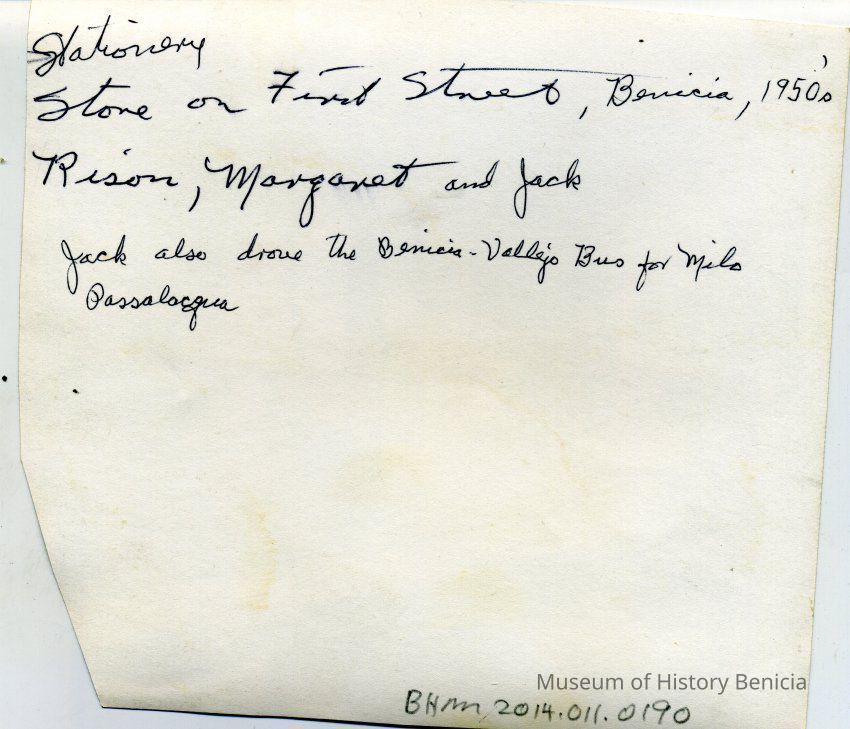 Stationery
Store on First Street, Benicia, 1950's
Rison, Margaret and Jack
Jack also drove the Benicia-Vallejo Bus for Milo
Passalacqua
Museum of History Benicia
BHM 2014.011.0190